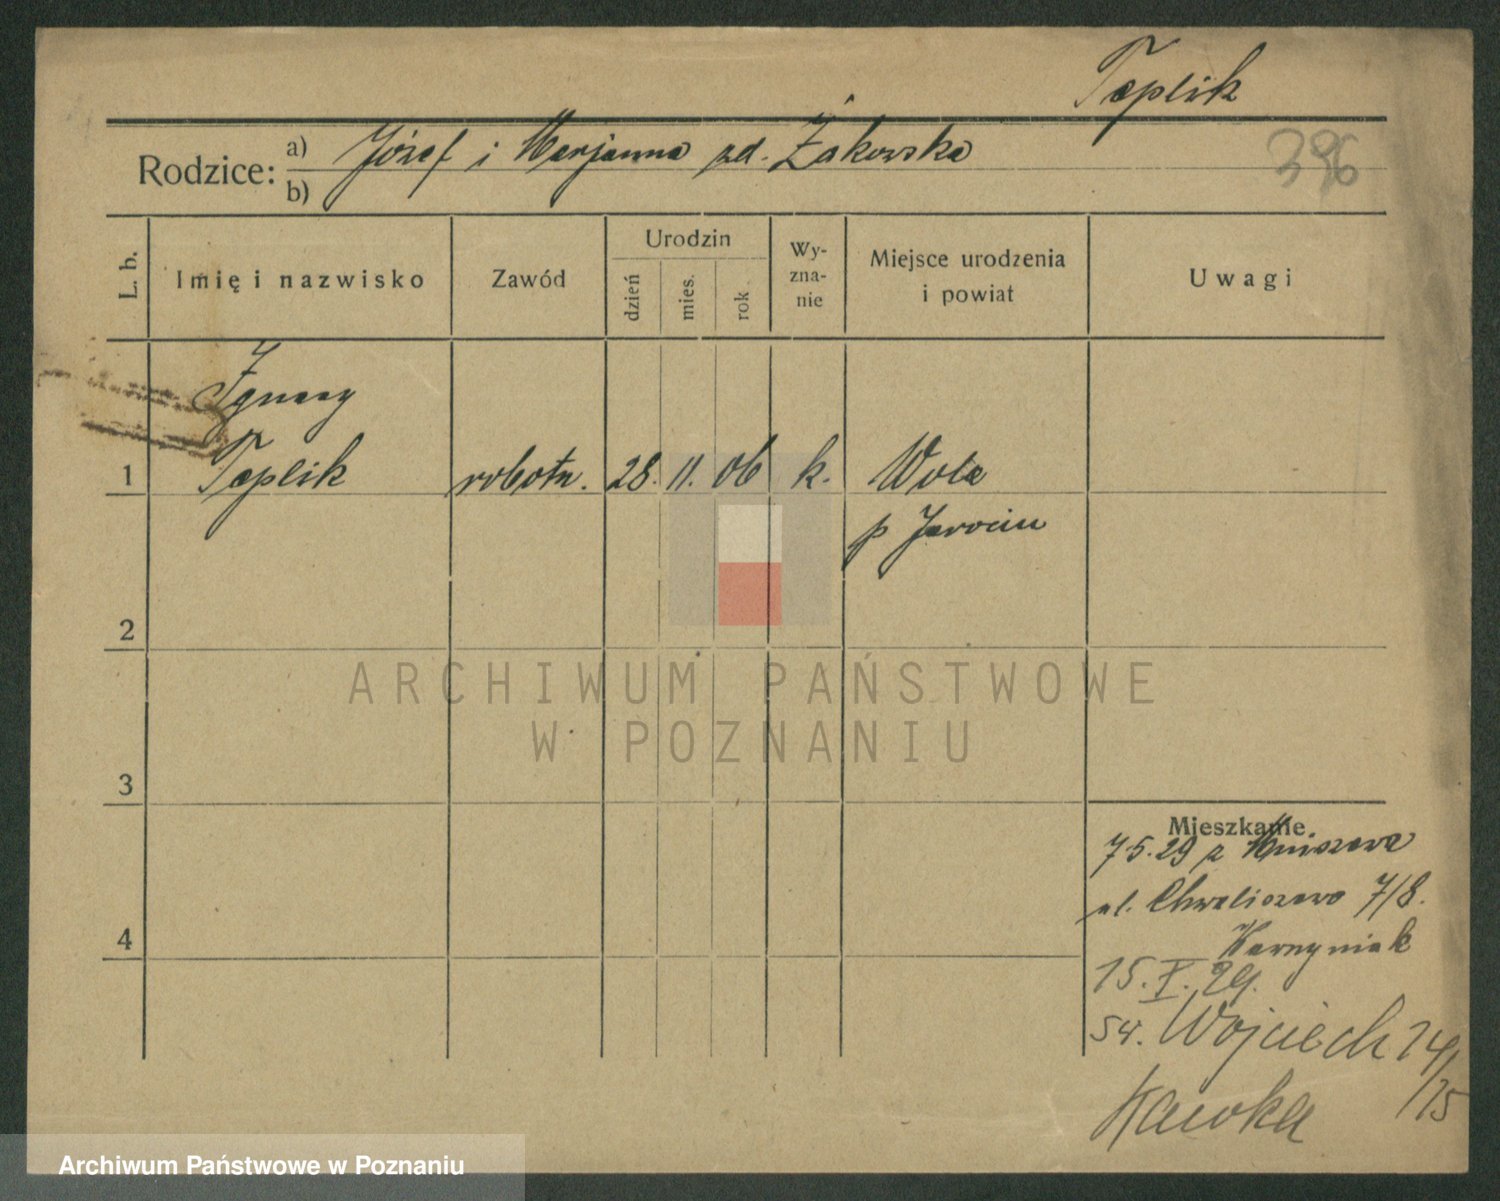 Taplik
Rodzice: a) Józef i Marjanna zd. Żakowska
b)
396
L. b.
Imię i nazwisko
Zawód
Urodzin
dzień
mies.
rok
Wy-
zna-
nie
Miejsce urodzenia
i powiat
Uwagi
Ignacy
1 Taplik robotn. 28. 11. 06 k. Wola
p Jarocin
2
3
4
Mieszkanie
7.5.29 z Mniszewa
ul. Chwaliszewo 7/8.
15. X. 29.
św. Wojciech 24/15
Kawka
ARCHIWUM PAŃSTWOWE
W POZNANIU
Archiwum Państwowe w Poznaniu